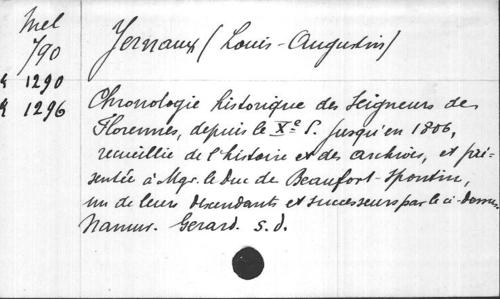 Mel
790
R 1290
R 1296
Jernaux (Louis-Augustin)
Chronologie historique des Seigneurs de
Florennes, depuis le Xe S. jusqu'en 1806,
recueillie de l'histoire et des archives, et pré-
sentée à Mgr. le Duc de Beaufort-Spontin,
un de leurs descendants et successeurs par le ci-dessus
Namur. Gerard. s.d.